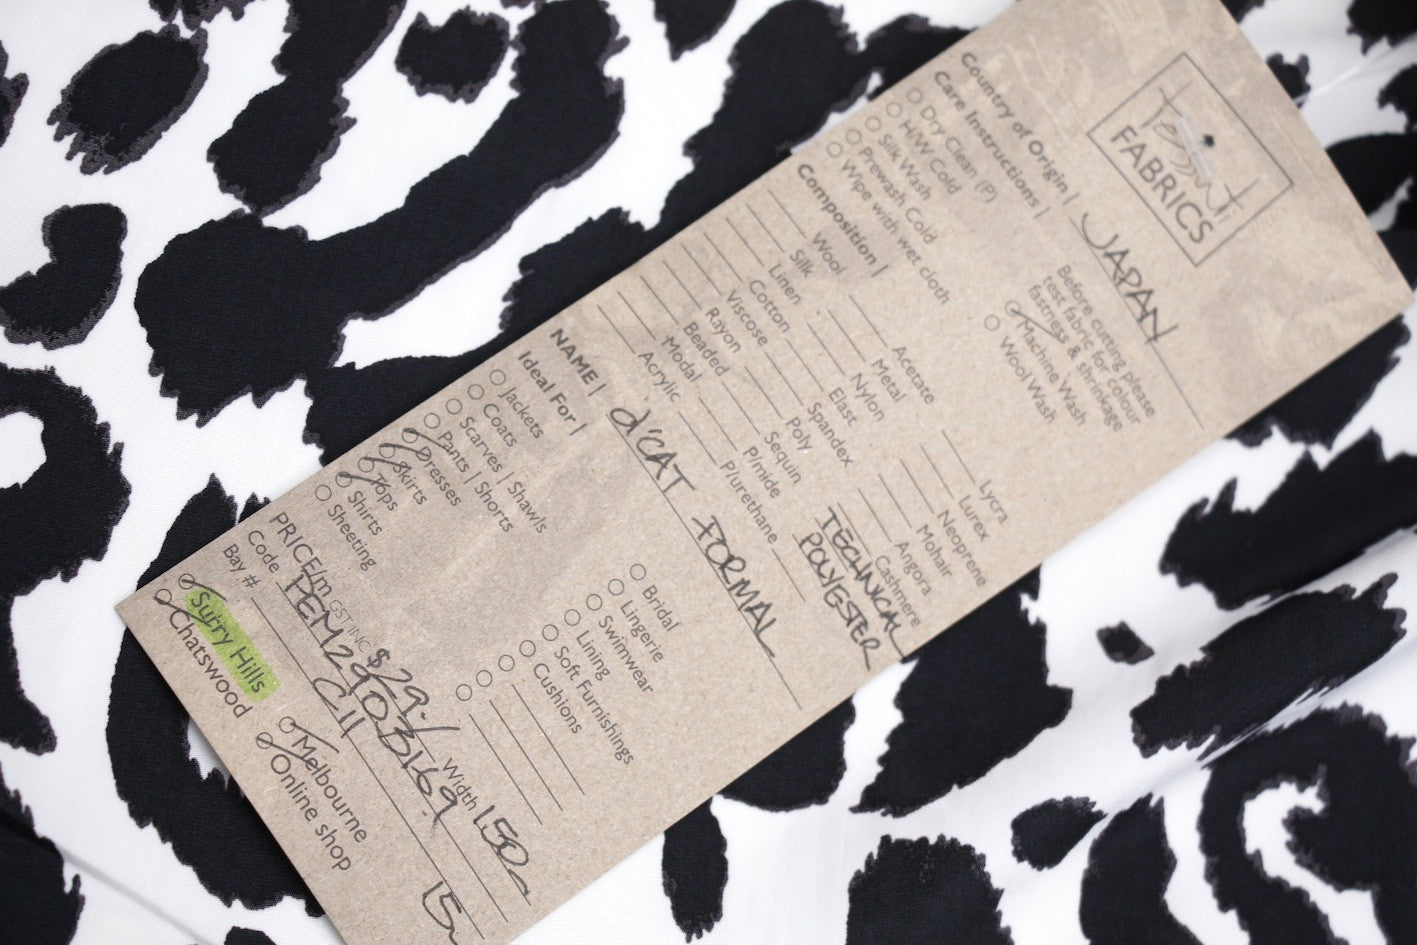 Tessuti
FABRICS
Country of Origin | JAPAN
Care Instructions |
Before cutting please
test fabric for colour
fastness & shrinkage
Dry Clean (P)
H/W Cold
Silk Wash
Prewash Cold
Wipe with wet cloth
Machine Wash
Wool Wash
Composition |
Wool
Silk
Linen
Cotton
Viscose
Rayon
Beaded
Modal
Acrylic
Acetate
Metal
Nylon
Elast
Spandex
Poly
Sequin
P/mide
P/urethane
Lycra
Lurex
Neoprene
Mohair
Angora
Cashmere
TECHNICAL
POLYESTER
NAME | d'CAT FORMAL
Ideal For |
Jackets
Coats
Scarves | Shawls
Pants | Shorts
Dresses
Skirts
Tops
Shirts
Sheeting
Bridal
Lingerie
Swimwear
Lining
Soft Furnishings
Cushions
PRICE/m GST INC $29./ Width 1.50
Code
Bay # C11 15
Surry Hills
Chatswood
Melbourne
Online shop